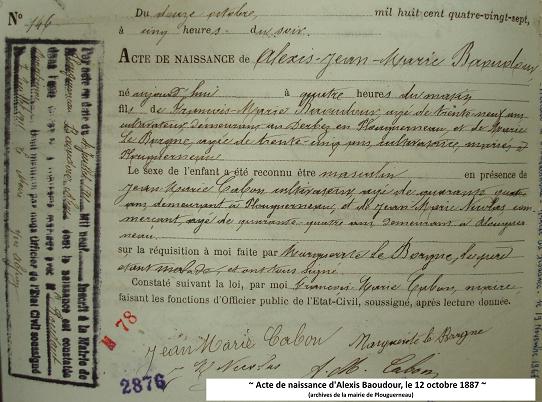 N° 146
Du douze octobre mil huit cent quatre-vingt-sept,
à cinq heures du soir.
ACTE DE NAISSANCE de Alexis-Jean-Marie Baoudour
né aujourd'hui à quatre heures du matin
fils de François-Marie Baoudour, agé de trente-neuf ans
cultivateur demeurant au en Plouguerneau, et de Marie
Le Borgne, agée de trente-cinq ans cultivatrice, mariés à
Plouguerneau
Le sexe de l'enfant a été reconnu être masculin en présence de
Jean Marie Cabon cultivateur agé de quarante quatre
ans demeurant à Plouguerneau, et de Jean Marie Nicolas com-
merçant, agé de quarante quatre ans demeurant à Plouguer-
neau
sur la réquisition à moi faite par Marguerite Le Borgne, le père
étant malade, et ont tous signé
Constaté suivant la loi, par moi François Marie Cabon, maire
faisant les fonctions d'Officier public de l'Etat-Civil, soussigné, après lecture donnée.
Jean Marie Cabon Marguerite le Borgne
Nicolas F. M. Cabon
78
2876
Par acte en date du juillet Mil neuf inscrit à la Mairie de
Plouguerneau Baoudour Alexis dont la naissance est constatée
dans l'acte
mention par nous Officier de l'Etat Civil soussigné
~ Acte de naissance d'Alexis Baoudour, le 12 octobre 1887 ~
(archives de la mairie de Plouguerneau)